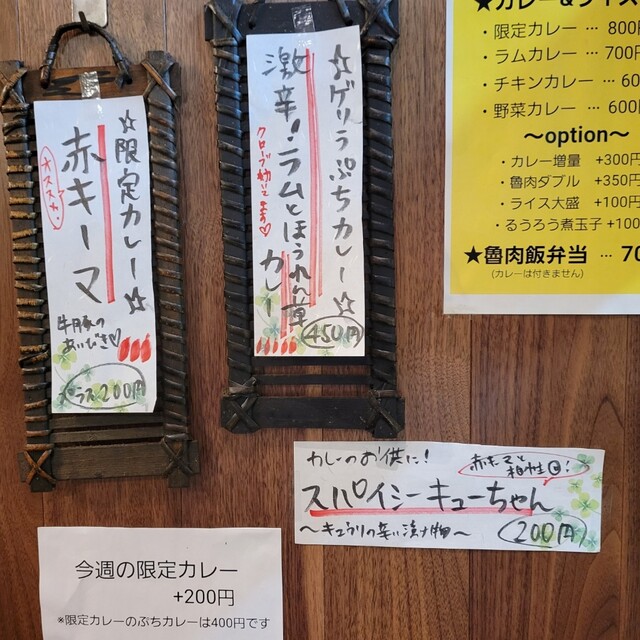 ☆限定カレー☆
オススメ!
赤キーマ
牛豚の
あいびき♡
プラス200円
☆ゲリラぷちカレー☆
激辛!ラムとほうれん草
カレー
クローブ効いてます♡
450円
★カレー&ライス
・限定カレー … 800円
・ラムカレー … 700円
・チキンカレー … 60
・野菜カレー … 600
〜option〜
・カレー増量 +300円
・魯肉ダブル +350円
・ライス大盛 +100円
・るうろう煮玉子 +100円
★魯肉飯弁当 … 70
(カレーは付きません)
カレーのお供に!
赤キーマと
相性◎!
スパイシーキューちゃん
〜キュウリの辛い漬け物〜
200円
今週の限定カレー
+200円
※限定カレーのぷちカレーは400円です